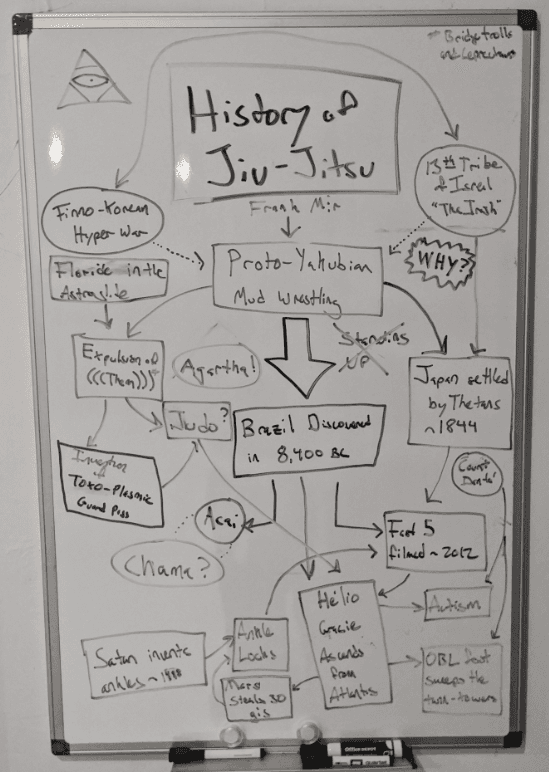 Bridge trolls
and Leprechauns
History of
Jiu-Jitsu
Frank Mir
13th Tribe
of Isreal
"The Irish"
Finno-Korean
Hyper War
WHY?
Proto-Yakubian
Mud Wrestling
Floride in the
Standing
UP
Expulsion of
(((Them)))
Agartha!
Japan settled
by Thetans
~1844
Judo?
Brazil Discovered
in 8,400 BC
Count
Dante
Invention
Toxo-Plasmic
Guard Pass
Acai
Foot 5
filmed ~ 2012
Chama?
Hélio
Gracie
Ascends
from
Atlantis
Autism
Ankle
Locks
Satan invents
ankles ~
OBL foot
sweeps the
twin-towers
Mars
Steals 30
gis